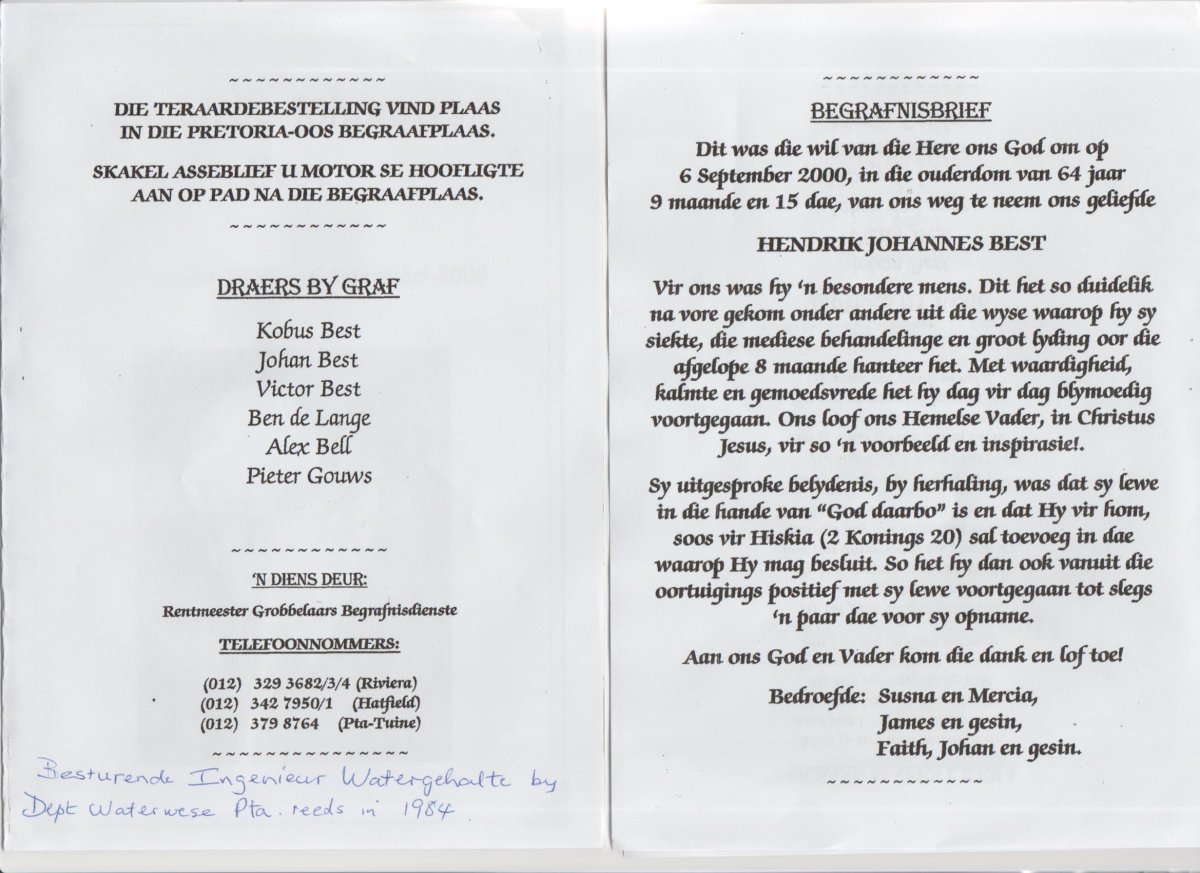 ~~~~~~~~~~~~
DIE TERAARDEBESTELLING VIND PLAAS
IN DIE PRETORIA-OOS BEGRAAFPLAAS.
SKAKEL ASSEBLIEF U MOTOR SE HOOFLIGTE
AAN OP PAD NA DIE BEGRAAFPLAAS.
~~~~~~~~~~~~
DRAERS BY GRAF
Kobus Best
Johan Best
Victor Best
Ben de Lange
Alex Bell
Pieter Gouws
~~~~~~~~~~~~
'N DIENS DEUR:
Rentmeester Grobbelaars Begrafnisdienste
TELEFOONNOMMERS:
(012) 329 3682/3/4 (Riviera)
(012) 342 7950/1 (Hatfield)
(012) 379 8764 (Pta-Tuine)
~~~~~~~~~~~~~~~
Besturende Ingenieur Watergehalte by
Dept Waterwese Pta. reeds in 1984
~~~~~~~~~~~~
BEGRAFNISBRIEF
Dit was die wil van die Here ons God om op
6 September 2000, in die ouderdom van 64 jaar
9 maande en 15 dae, van ons weg te neem ons geliefde
HENDRIK JOHANNES BEST
Vir ons was hy 'n besondere mens. Dit het so duidelik
na vore gekom onder andere uit die wyse waarop hy sy
siekte, die mediese behandelinge en groot lyding oor die
afgelope 8 maande hanteer het. Met waardigheid,
kalmte en gemoedsvrede het hy dag vir dag blymoedig
voortgegaan. Ons loof ons Hemelse Vader, in Christus
Jesus, vir so 'n voorbeeld en inspirasie!.
Sy uitgesproke belydenis, by herhaling, was dat sy lewe
in die hande van "God daarbo" is en dat Hy vir hom,
soos vir Hiskia (2 Konings 20) sal toevoeg in dae
waarop Hy mag besluit. So het hy dan ook vanuit die
oortuigings positief met sy lewe voortgegaan tot slegs
'n paar dae voor sy opname.
Aan ons God en Vader kom die dank en lof toe!
Bedroefde: Susna en Mercia,
James en gesin,
Faith, Johan en gesin.
~~~~~~~~~~~~